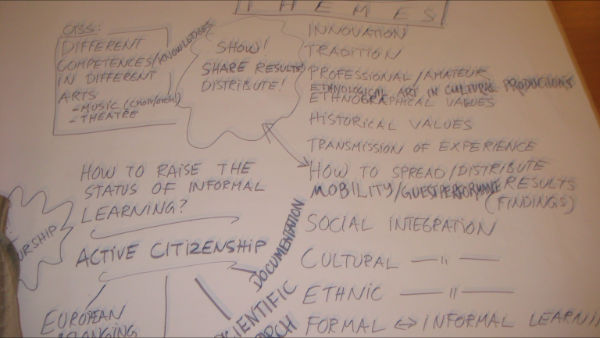 THEMES
CASS:
DIFFERENT
COMPETENCES/KNOWLEDGES
IN DIFFERENT
ARTS
- MUSIC
- THEATRE
SHOW!
SHARE RESULTS
DISTRIBUTE!
INNOVATION
TRADITION
PROFESSIONAL/AMATEUR
ETHNOLOGICAL ART IN CULTURAL PRODUCTIONS
ETHNOGRAPHICAL VALUES
HISTORICAL VALUES
TRANSMISSION OF EXPERIENCE
HOW TO SPREAD/DISTRIBUTE
RESULTS
(FINDINGS)
MOBILITY/GUESTPERFORMANCE
SOCIAL INTEGRATION
CULTURAL — " —
ETHNIC — " —
FORMAL ↔ INFORMAL LEARNIN
HOW TO RAISE THE
STATUS OF INFORMAL
LEARNING?
URSHIP
ACTIVE CITIZENSHIP
DOCUMENTATION
EUROPEAN
BELONGING